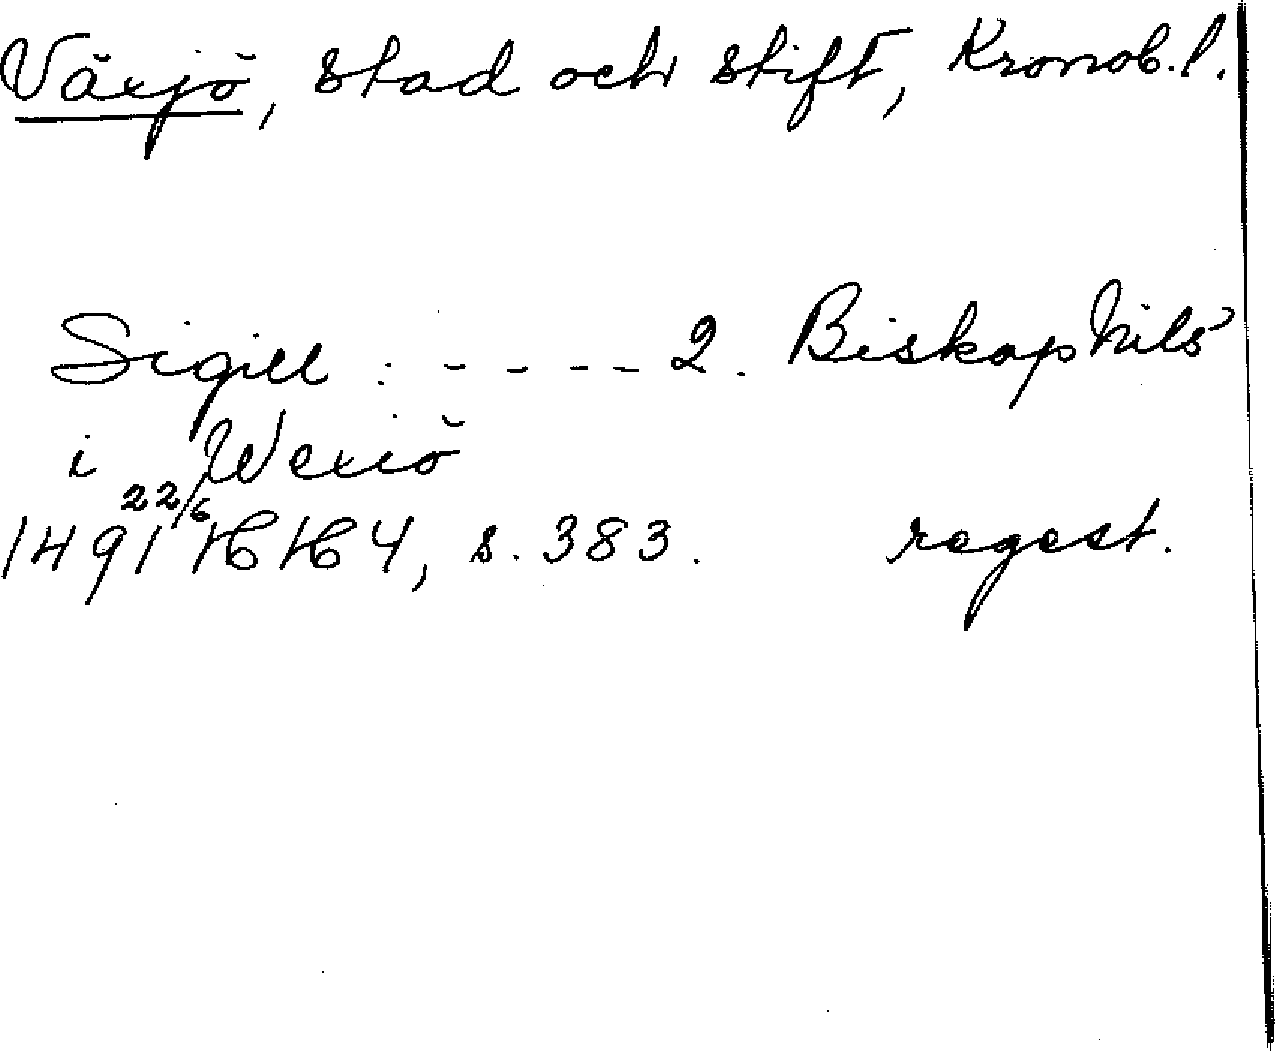 Växjö, stad och stift, Kronob. l.
Sigill : - - - - 2. Biskop Nils
i Wexiö
1491 22/6 HH 4, s. 383. regest.